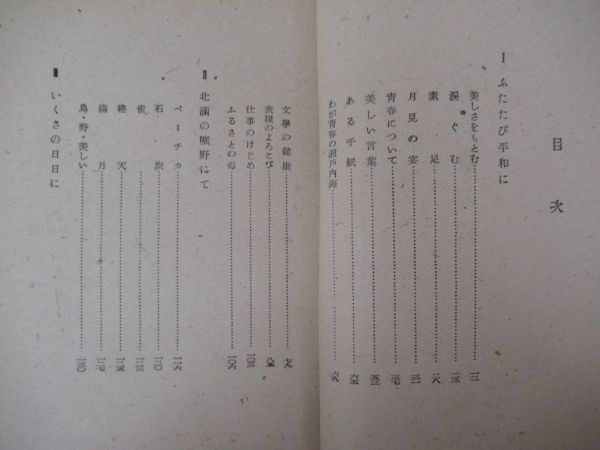 目次
Ⅰ ふたたび平和に
美しさをもとむ……一
涙ぐむ……一三
素足……一八
月見の宴……三一
青春について……三七
美しい言葉……五三
ある手紙……六三
わが青春の瀬戸内海……六九
文學の健康……七九
表現のよろこび……
仕事のけじめ……一〇三
ふるさとの母……一〇六
Ⅱ 北滿の曠野にて
ペーチカ……一一六
石炭……一二〇
雀……一二三
曉天……一二五
滿月……一二七
鳥・野・美しい……一三〇
Ⅲ いくさの日日に